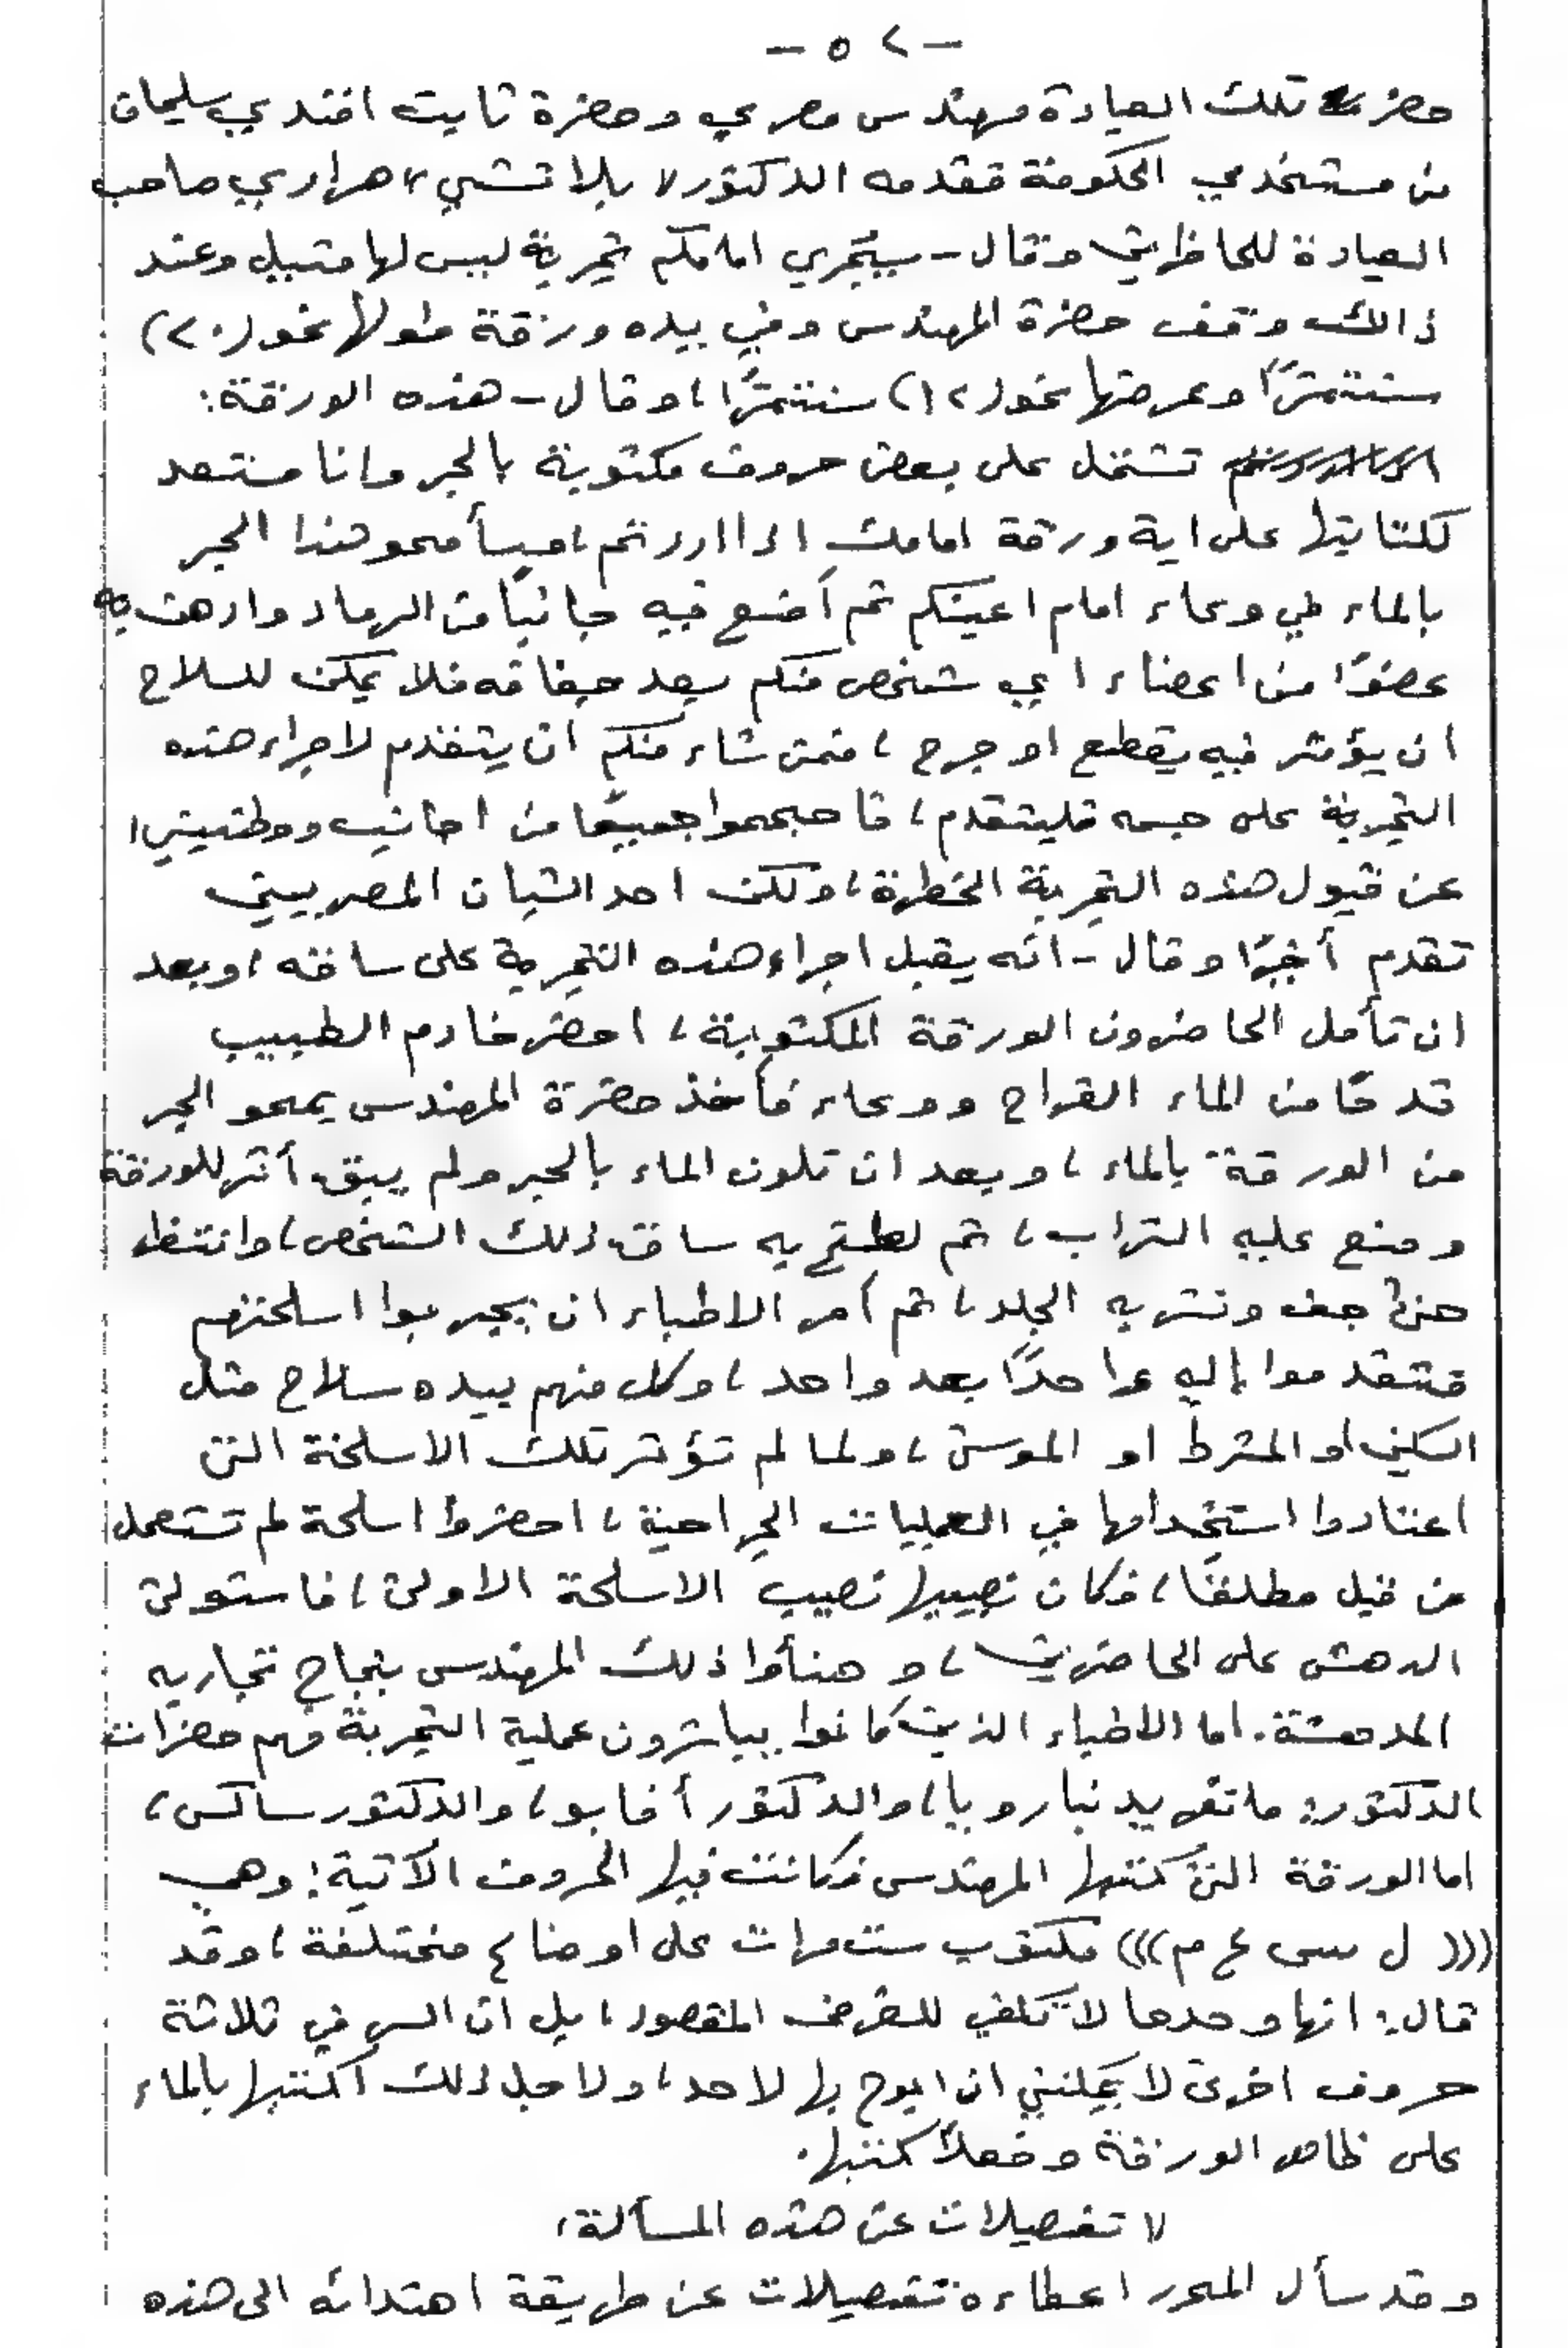 - ٥٢ -
حضر تلك العيادة مهندس مصري وحضرة ثابت افندي سليمان
من مستخدمي الحكومة فقدمه الدكتور « بلاتشي » هراري صاحب
العيادة للحاظرين وقال - سيجري امامكم تجربة ليس لها مثيل وعند
ذالك وقف حضرة المهندس وفي بيده ورقة طولها نحو (٢٠)
سنتمترًا وعرضها نحو (١٢) سنتمترًا، وقال - هذه الورقة:
تشتمل على بعض حروف مكتوبة بالحبر وانا مستعد
لكتابتها على اية ورقة امامك اذا اردتم، سأمحو هذا الحبر
بالماء في وعاء امام اعينكم ثم أضع فيه جانبًا من الرماد وادهن به
عضوًا من اعضاء اي شخص منكم بعد جفافه فلا يمكن للسلاح
ان يؤثر فيه بقطع او جرح ، فمن شاء منكم ان يتقدم لاجراء هذه
التجربة على جسمه فليتقدم، فاحجموا جميعًا من اجانب ووطنيين
عن قبول هذه التجربة الخطرة، ولكن احد الشبان المصريين
تقدم أخيرًا وقال - انه يقبل اجراء هذه التجربة على ساقه، وبعد
ان تأمل الحاضرون الورقة المكتوبة، احضر خادم الطبيب
قدحًا من الماء القراح ووعاء فأخذ حضرة المهندس يمحو الحبر
من الورقة بالماء، وبعد ان تلون الماء بالحبر ولم يبق أثر للورقة
وضع عليه التراب، ثم لطخ به ساق ذلك الشخص، وانتظر
حتى جف وتشربه الجلد، ثم أمر الاطباء ان يجربوا اسلحتهم
فتقدموا إليه واحدًا بعد واحد، وكل منهم بيده سلاح مثل
السكين او المشرط او الموسى، ولما لم تؤثر تلك الاسلحة التى
اعتادوا استخدامها في العمليات الجراحية، احضروا اسلحة لم تستعمل
من قبل مطلقًا، فكان نصيبها نصيب الاسلحة الاولى، فاستولى
الدهش على الحاضرين، و هنأوا ذلك المهندس بنجاح تجاربه
المدهشة. اما الاطباء الذين كانوا يباشرون عملية التجربة فهم حضرات
الدكتور: مانفريد نباروبا، والدكتور أفابو، والدكتور ساكس،
اما الورقة التى كتبها المهندس فكانت فيها الحروف الآتية: وهي
((( ل س ع م ))) مكتوب ست مرات على اوضاع مختلفة، وقد
قال: انها وحدها لا تكفي للغرض المقصود، بل ان السر في ثلاثة
حروف اخرى لا يمكنني ان ابوح بها لاحد، ولاجل ذلك أكتبها بالماء
على ظاهر الورقة وفعلاً كتبها.
لا تفصيلات عن هذه المسألة،
وقد سأل المحرر اعطاءه تفصيلات عن طريقة اهتدائه الى هذه